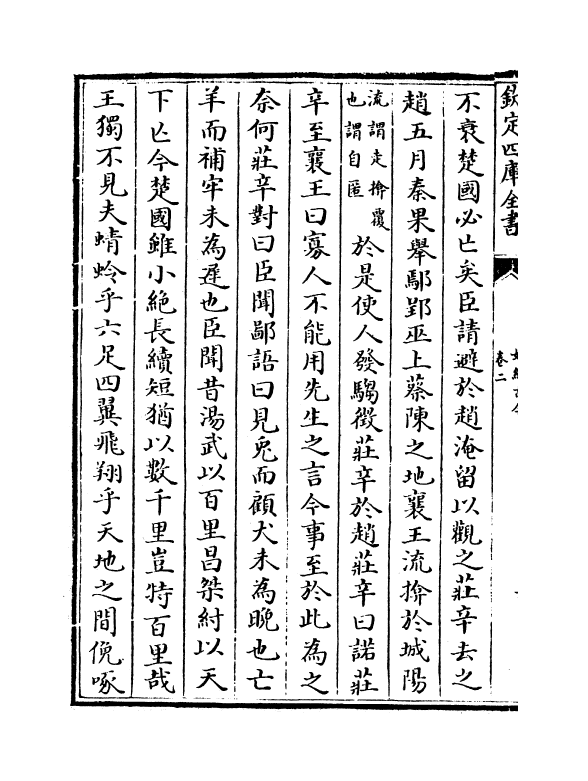 欽定四庫全書
卷二
不衰楚國必亡矣臣請避於趙淹留以觀之莊辛去之
趙五月秦果舉鄢郢巫上蔡陳之地襄王流揜於城陽
流謂走揜覆
也謂自匿
於是使人發騶徵莊辛於趙莊辛曰諾莊
辛至襄王曰寡人不能用先生之言今事至於此為之
奈何莊辛對曰臣聞鄙語曰見兎而顧犬未為晚也亡
羊而補牢未為遲也臣聞昔湯武以百里昌桀紂以天
下亡今楚國雖小絶長續短猶以數千里豈特百里哉
王獨不見夫蜻蛉乎六足四翼飛翔乎天地之間俛啄